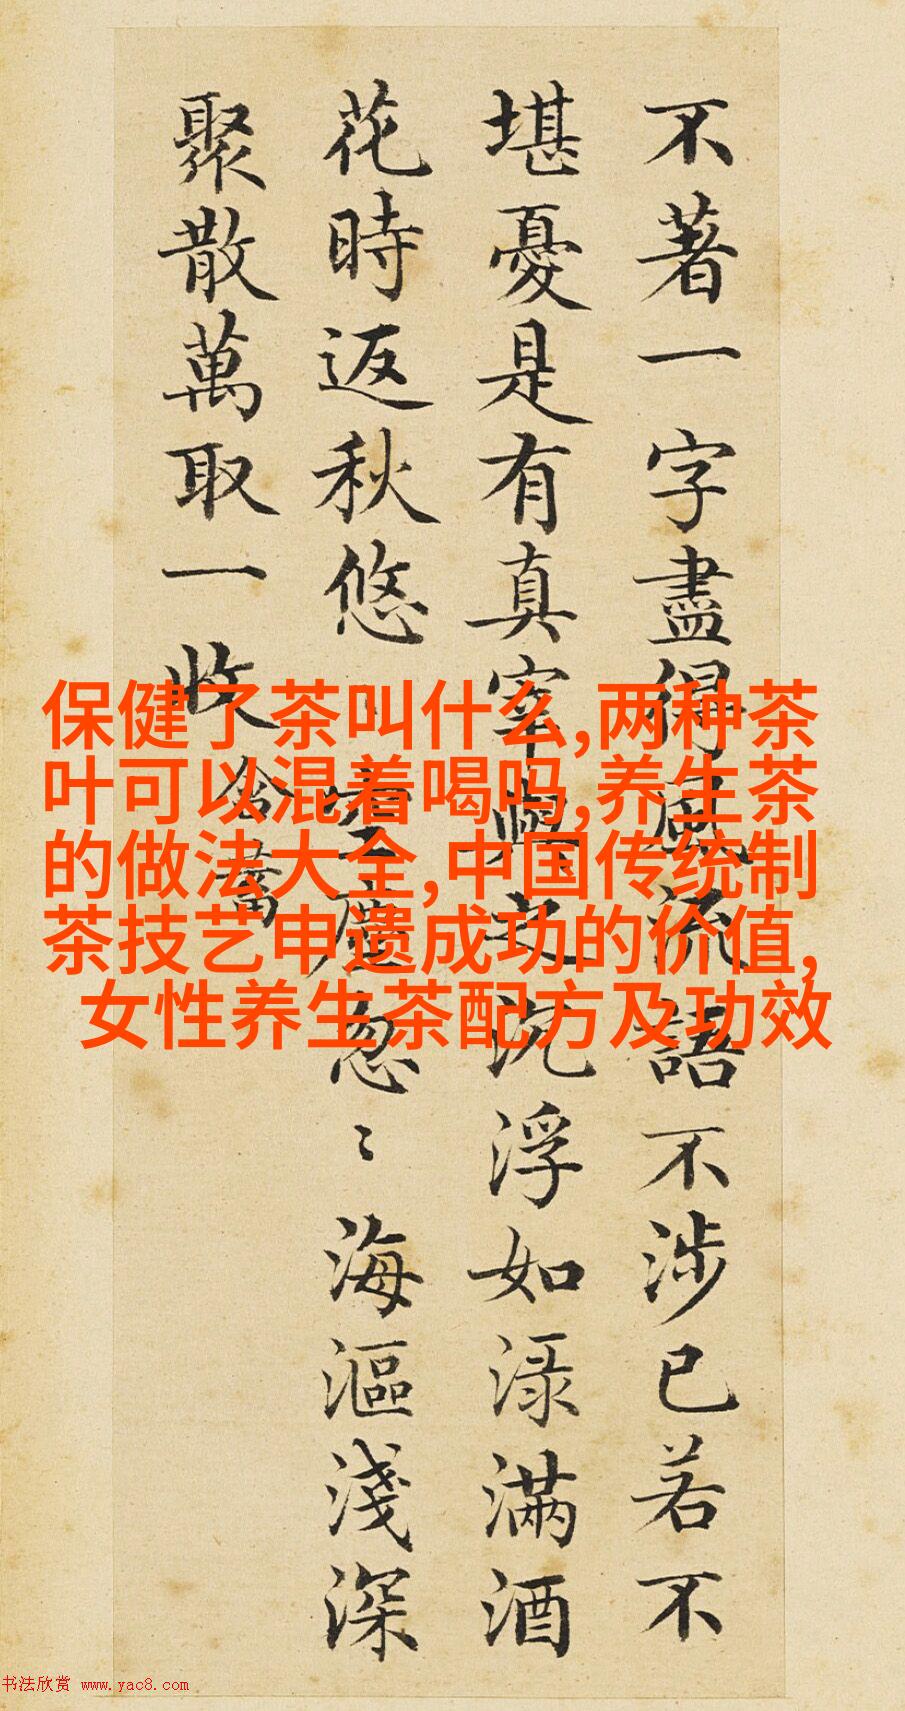 不著一字盡得風流語不涉已若不
堪憂是有真宰與之沉浮如淥滿酒
花時返秋悠〻空塵忽〻海漚淺深
聚散萬取一收 含蓄
保健了茶叫什么,两种茶
叶可以混着喝吗,养生茶
的做法大全,中国传统制
茶技艺申遗成功的价值,
女性养生茶配方及功效
书法欣赏 www.yac8.com